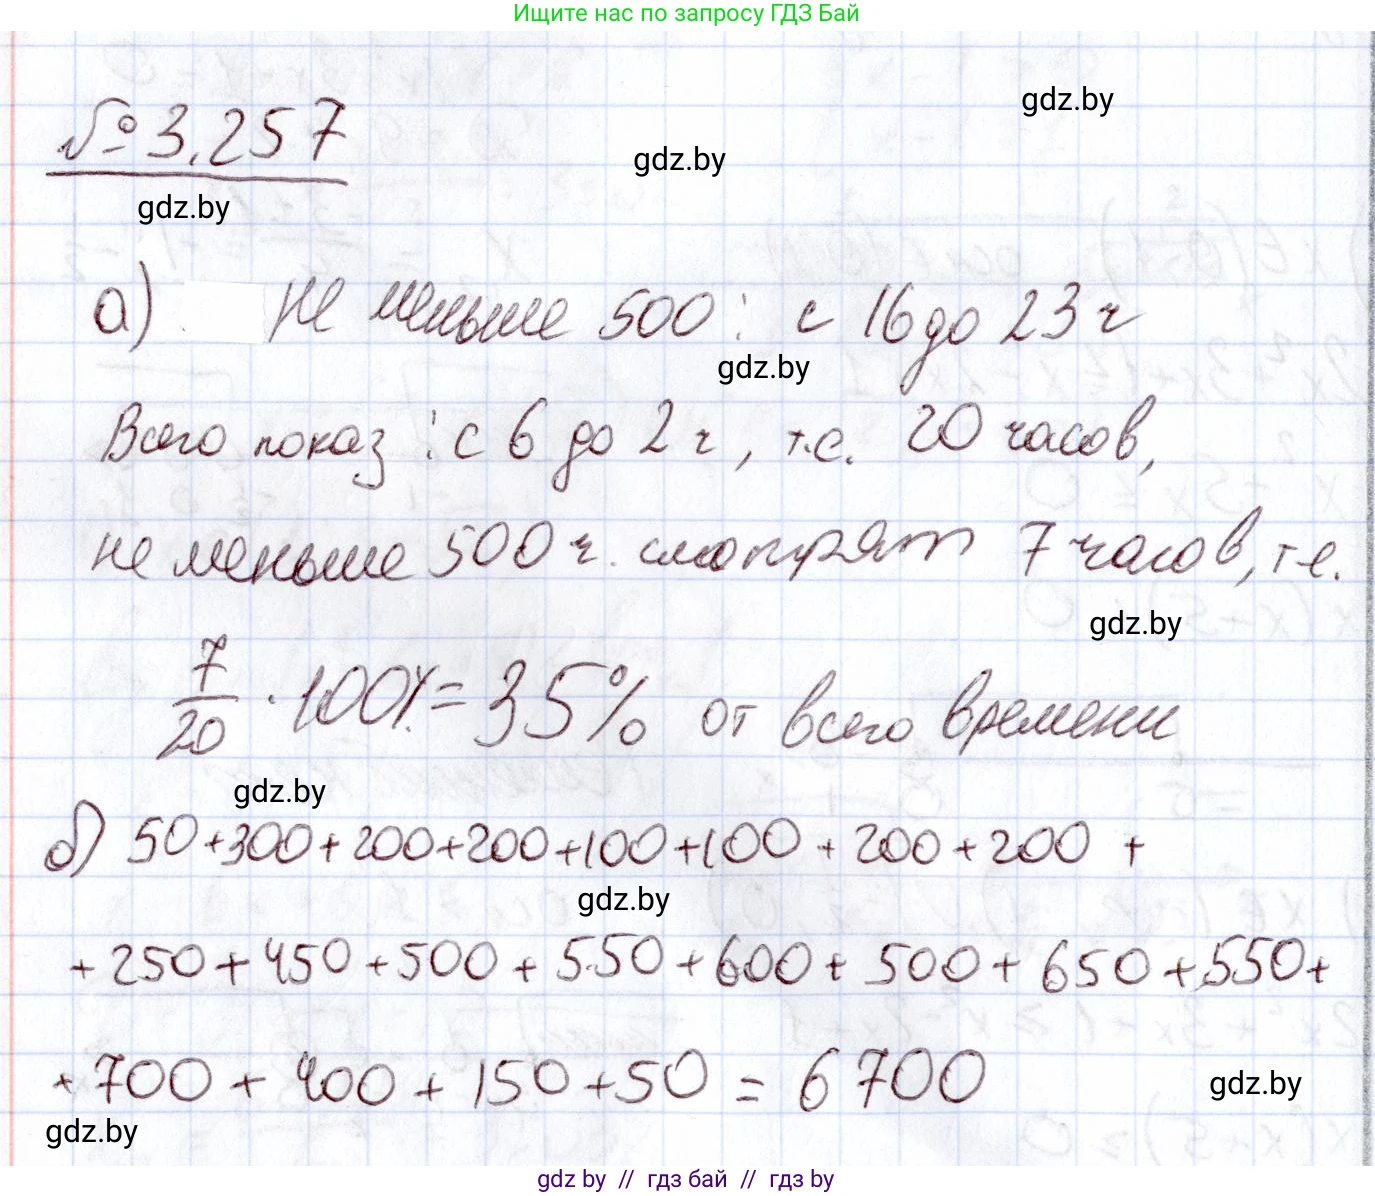 Ищите нас по запросу ГДЗ Бай
gdz.by
№ 3.257
gdz.by
gdz.by
а) Не меньше 500: с 16 до 23 ч
gdz.by
Всего показ: с 6 до 2 ч, т.е. 20 часов,
не меньше 500 ч. смотрят 7 часов, т.е.
gdz.by
7/20 · 100% = 35% от всего времени
gdz.by
б) 50+300+200+200+100+100+200+200 +
gdz.by
+ 250 + 450 + 500 + 550 + 600 + 500 + 650 + 550 +
+ 700 + 400 + 150 + 50 = 6700
gdz.by
gdz.by
gdz by // гдз бай // гдз by